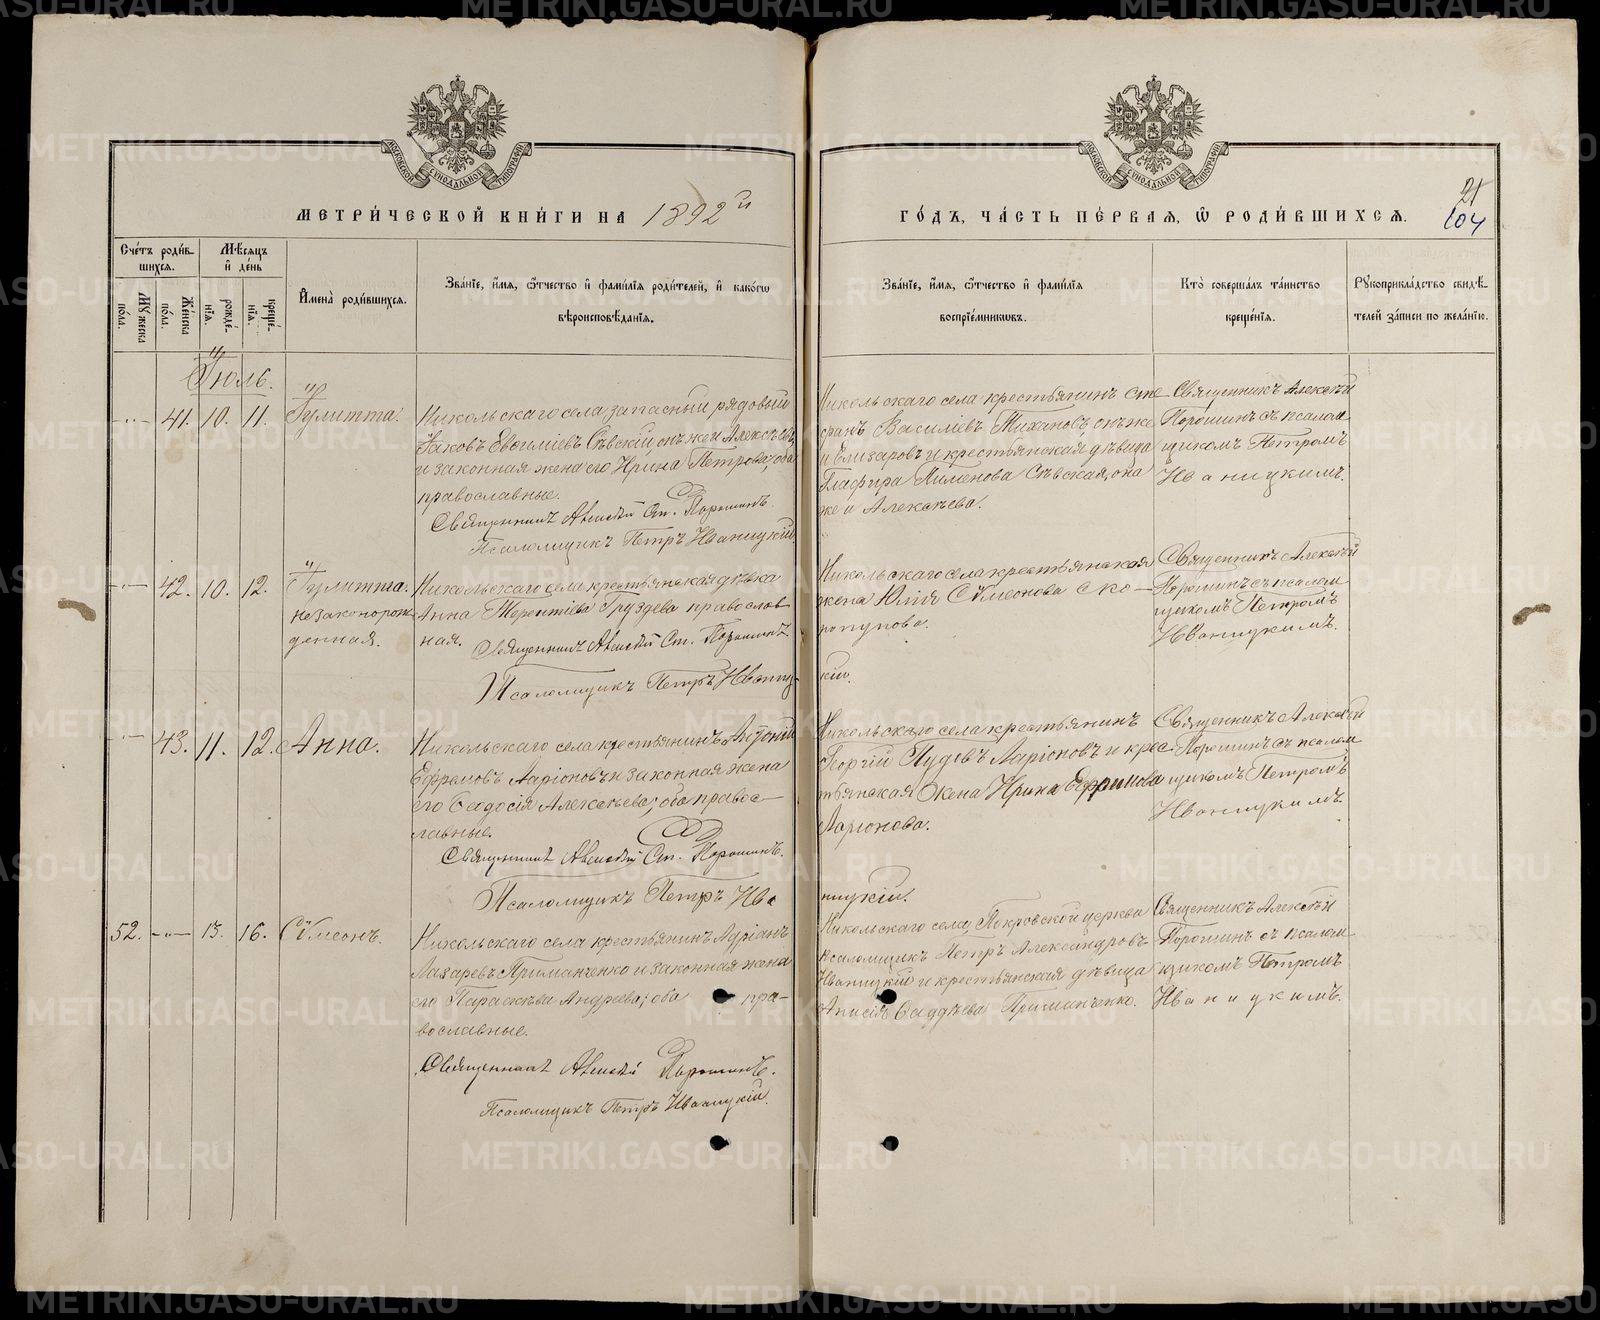 МЕТРИ́ЧЕСКОЙ КНИ́ГИ НА 1892й
ГО́ДЪ, ЧА́СТЬ ПЕ́РВАЯ, Ѡ҆ РОДИ́ВШИХСѦ.
21
104
Сче́тъ роди́в-
шихсѧ.
Мѣ́сѧцъ
и҆ де́нь
И҆мена̀ роди́вшихсѧ.
Зва́нїе, и҆́мѧ, ѻ҆́тчество и҆ фами́лїѧ роди́телей, и҆ како́гѡ
вѣроисповѣ́данїѧ.
Зва́нїе, и҆́мѧ, ѻ҆́тчество и҆ фами́лїѧ
воспрїе́мникѡвъ.
Кто̀ соверша́лъ та́инство
креще́нїѧ.
Рꙋкоприкла́дство свидѣ́-
телей за́писи по жела́нїю.
Мꙋ́жеска
по́ла.
Же́нска
по́ла.
рожде́-
нїѧ.
креще́-
нїѧ.
Іюль.
41. 10. 11. Іулитта.
Никольскаго села запасный рядовый
Іаковъ Евѳиміевъ Сѣвскій, онъ же и Алексѣевъ,
и законная жена его Ирина Петрова; оба
православные.
Священникъ Алексѣй Ст. Порошинъ.
Псаломщикъ Петръ Иваницкій
Никольскаго села крестьянинъ Сте
фанъ Василіевъ Тихановъ онъ же
и Елизаровъ и крестьянская дѣвица
Глафира Пименова Сѣвская, она
же и Алексѣева.
Священникъ Алексѣй
Порошинъ съ псалом
щикомъ Петромъ
Иваницкимъ.
42. 10. 12. Іулитта.
незаконорож
денная.
Никольскаго села крестьянская дѣвка
Анна Терентіева Груздева православ
ная.
Священникъ Алексѣй Ст. Порошинъ
Псаломщикъ Петръ Иваниц-
кій.
Никольскаго села крестьянская
жена Юлія Сѵмеонова Ско-
ропупова.
Священникъ Алексѣй
Порошинъ съ псалом
щикомъ Петромъ
Иваницкимъ.
43. 11. 12. Анна.
Никольскаго села крестьянинъ Антоній
Ефремовъ Ларіоновъ и законная жена
его Ѳеодосія Алексѣева; оба правос-
лавные.
Священникъ Алексѣй Ст. Порошинъ.
Псаломщикъ Петръ Ива
ницкій.
Никольскаго села крестьянинъ
Георгій Іудовъ Ларіоновъ и крес-
тьянская жена Ирина Ефримова
Ларіонова.
Священникъ Алексѣй
Порошинъ съ псалом
щикомъ Петромъ
Иваницкимъ
52. 15. 16. Сѵмеонъ.
Никольскаго села крестьянинъ Адріанъ
Лазаревъ Приманченко и законная жена
его Параскѣва Андреева; оба пра-
вославные.
Священникъ Алексѣй Порошинъ.
Псаломщикъ Петръ Иваницкій.
Никольскаго села, Покровской церкви
псаломщикъ Петръ Александровъ
Иваницкій и крестьянская дѣвица
Анисія Ѳаддѣева Приманченко.
Священникъ Алексѣй
Порошинъ съ псалом
щикомъ Петромъ
Иваницкимъ.